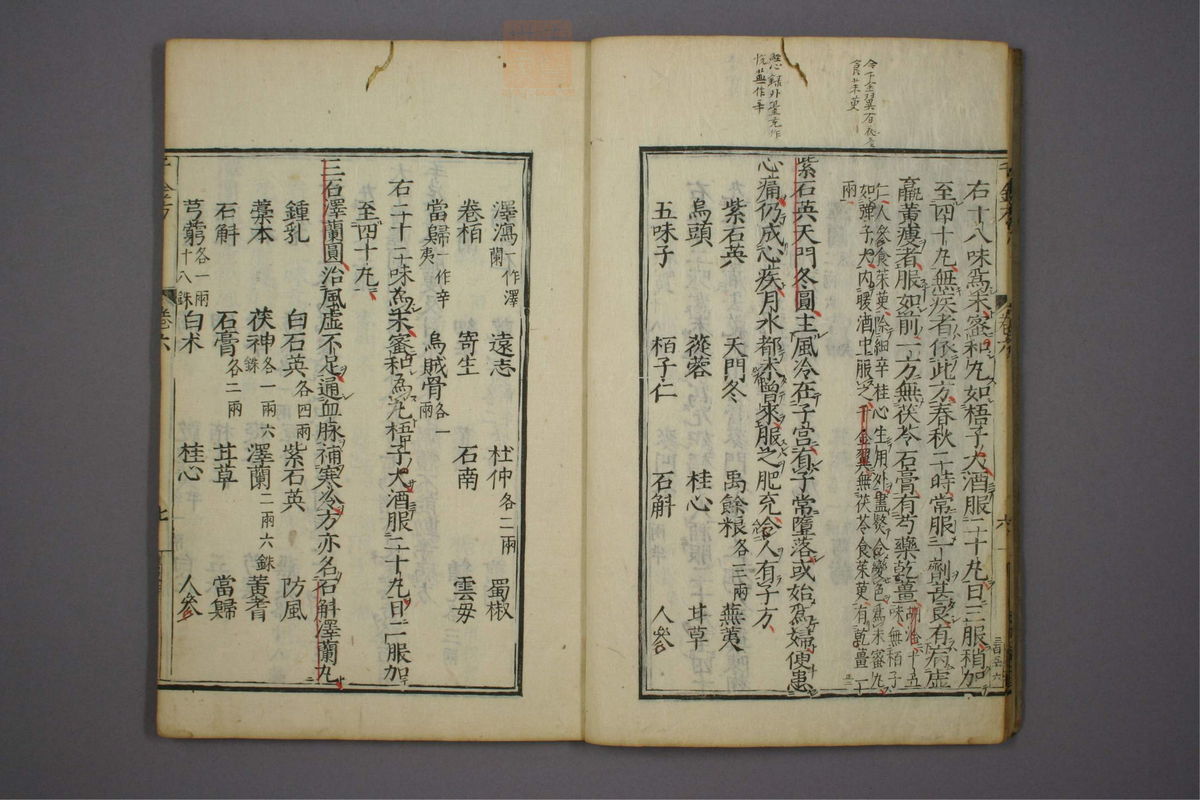 右十八味爲末蜜和丸如梧子大酒服二十丸日三服稍加
至四十丸無疾者依此方春秋二時常服一劑甚良有虛
羸黃瘦者服如前一方無茯苓石膏有芍藥乾薑
胡洽十五味無栢子
仁人參食茱萸除細辛桂心生用外盡熬令變色爲末蜜丸
如彈子大内暖酒中服之千金翼無茯苓食茱萸有乾薑一
兩
紫石英天門冬圓主風冷在子宮有子常墮落或始爲婦便患
心痛仍成心疾月水都未曾來服之肥充令人有子方
紫石英 天門冬 禹餘粮各三兩 蕪荑
烏頭 蓯蓉 桂心 甘草
五味子 栢子仁 石斛 人參
澤瀉一作澤蘭 遠志 杜仲各二兩 蜀椒
卷栢 寄生 石南 雲母
當歸一作辛夷 烏賊骨各一兩
右二十二味爲末蜜和爲丸梧子大酒服二十丸日二服加
至四十丸
三石澤蘭圓治風虛不足通血脉補寒冷方亦名石斛澤蘭丸
鍾乳 白石英各四兩 紫石英 防風
藁本 茯神各一兩六銖 澤蘭二兩六銖 黃耆
石斛 石膏各二兩 甘草 當歸
芎藭各一兩十八銖 白朮 桂心 人參
卷六
六
卷六
七